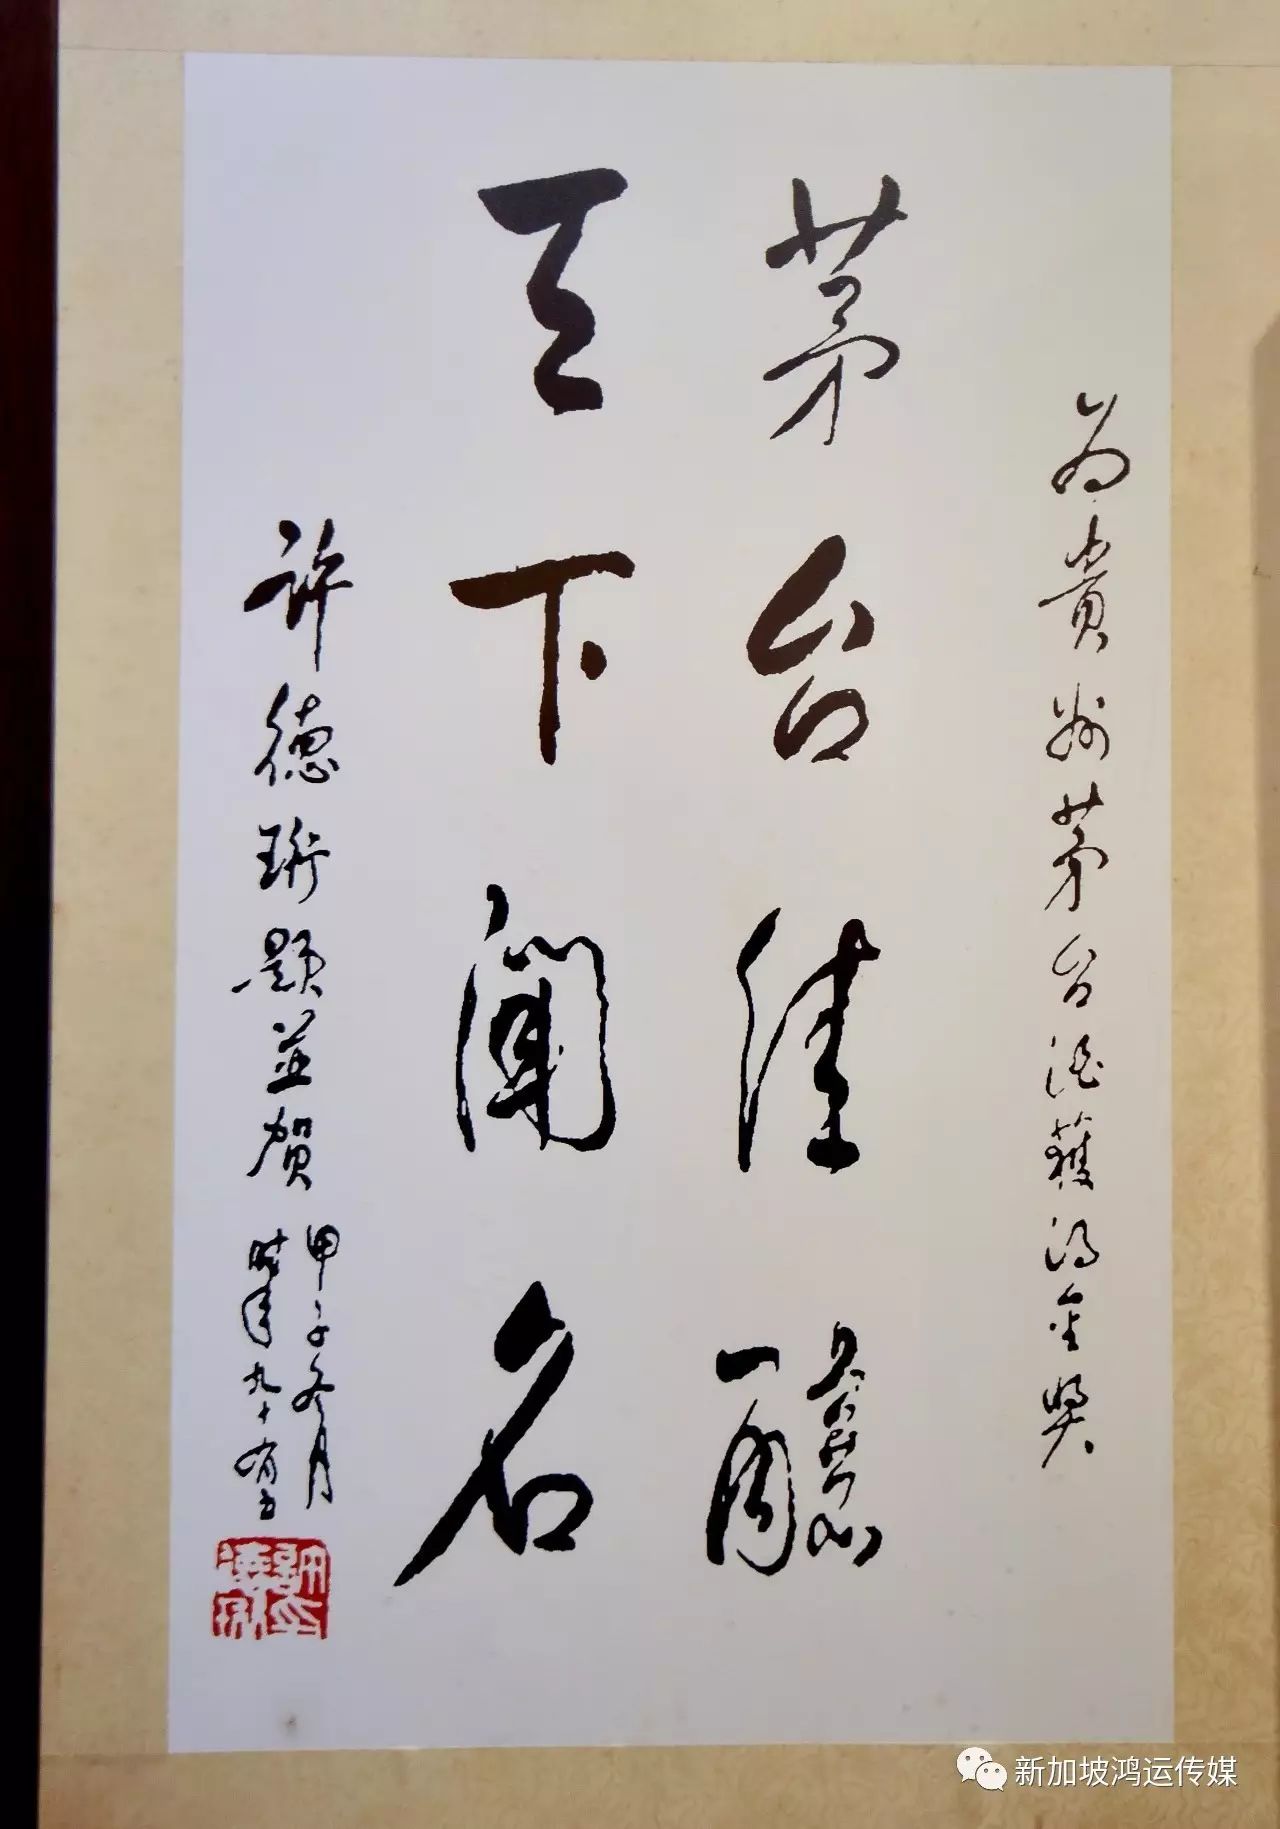 为贵州茅台酒获得金奖
茅台佳酿
天下闻名
许德珩题並贺
甲子冬月
时年九十有五
许德珩印
新加坡鸿运传媒